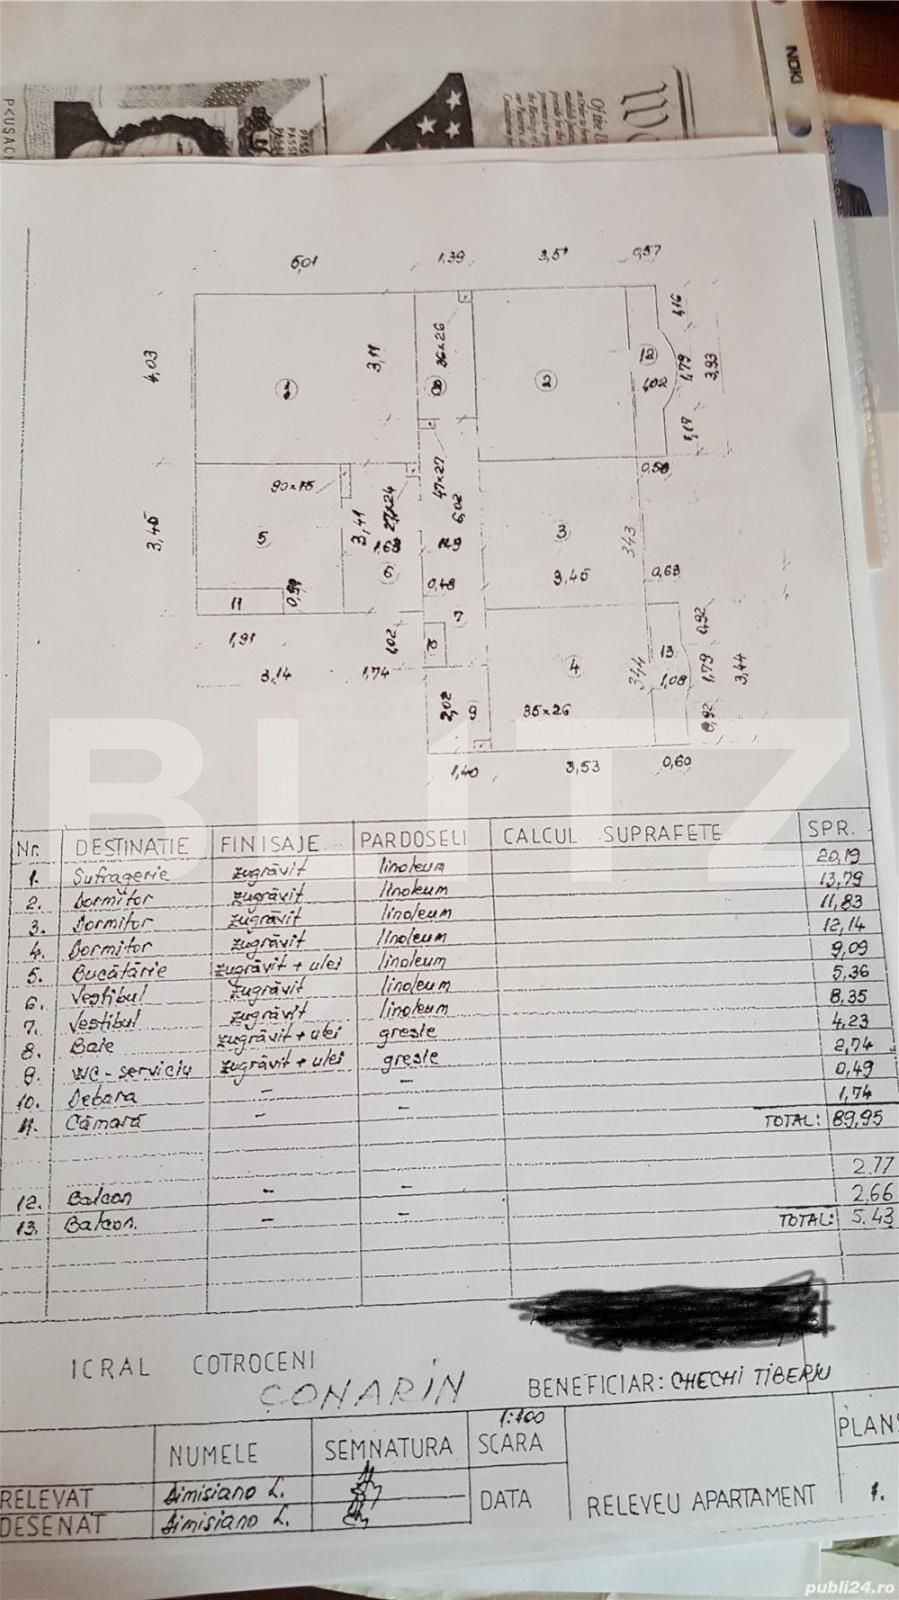 NOKI
P<USAC
We
Of the
5,01 1,39 3,51 0,57
4,03 3,11 36×26 1,16
1 10 2 12 1,02 1,79 3,93
47×27 1,17
90×15 0,58
3,45 5 3,41 27×24 6,02 3 343
6 3,45 0,63
11 0,48
7
1,91 1,02 8 13 0,92
3,14 1,74 4 344 1,08 1,79 3,44
2,02 9 35×26 0,92
1,40 3,53 0,60
BLITZ
Nr. DESTINATIE FINISAJE PARDOSELI CALCUL SUPRAFETE SPR.
1. Sufragerie zugrăvit linoleum 20,19
2. Dormitor zugrăvit linoleum 13,79
3. Dormitor zugrăvit linoleum 11,83
4. Dormitor zugrăvit linoleum 12,14
5. Bucătărie zugrăvit + ulei linoleum 9,09
6. Vestibul zugrăvit linoleum 5,36
7. Vestibul zugrăvit linoleum 8,35
8. Baie zugrăvit + ulei gresie 4,23
9. WC-serviciu zugrăvit + ulei gresie 2,74
10. Debara – – 0,49
11. Cămară – – 1,74
TOTAL: 89,95
12. Balcon – – 2.77
13. Balcon. – – 2.66
TOTAL: 5.43
ICRAL COTROCENI
CONARIN
BENEFICIAR: CHECHI TIBERIU
NUMELE SEMNATURA 1:100 SCARA PLANS
RELEVAT Dimisiano L. DATA RELEVEU APARTAMENT 1.
DESENAT Dimisiano L.
publi24.ro